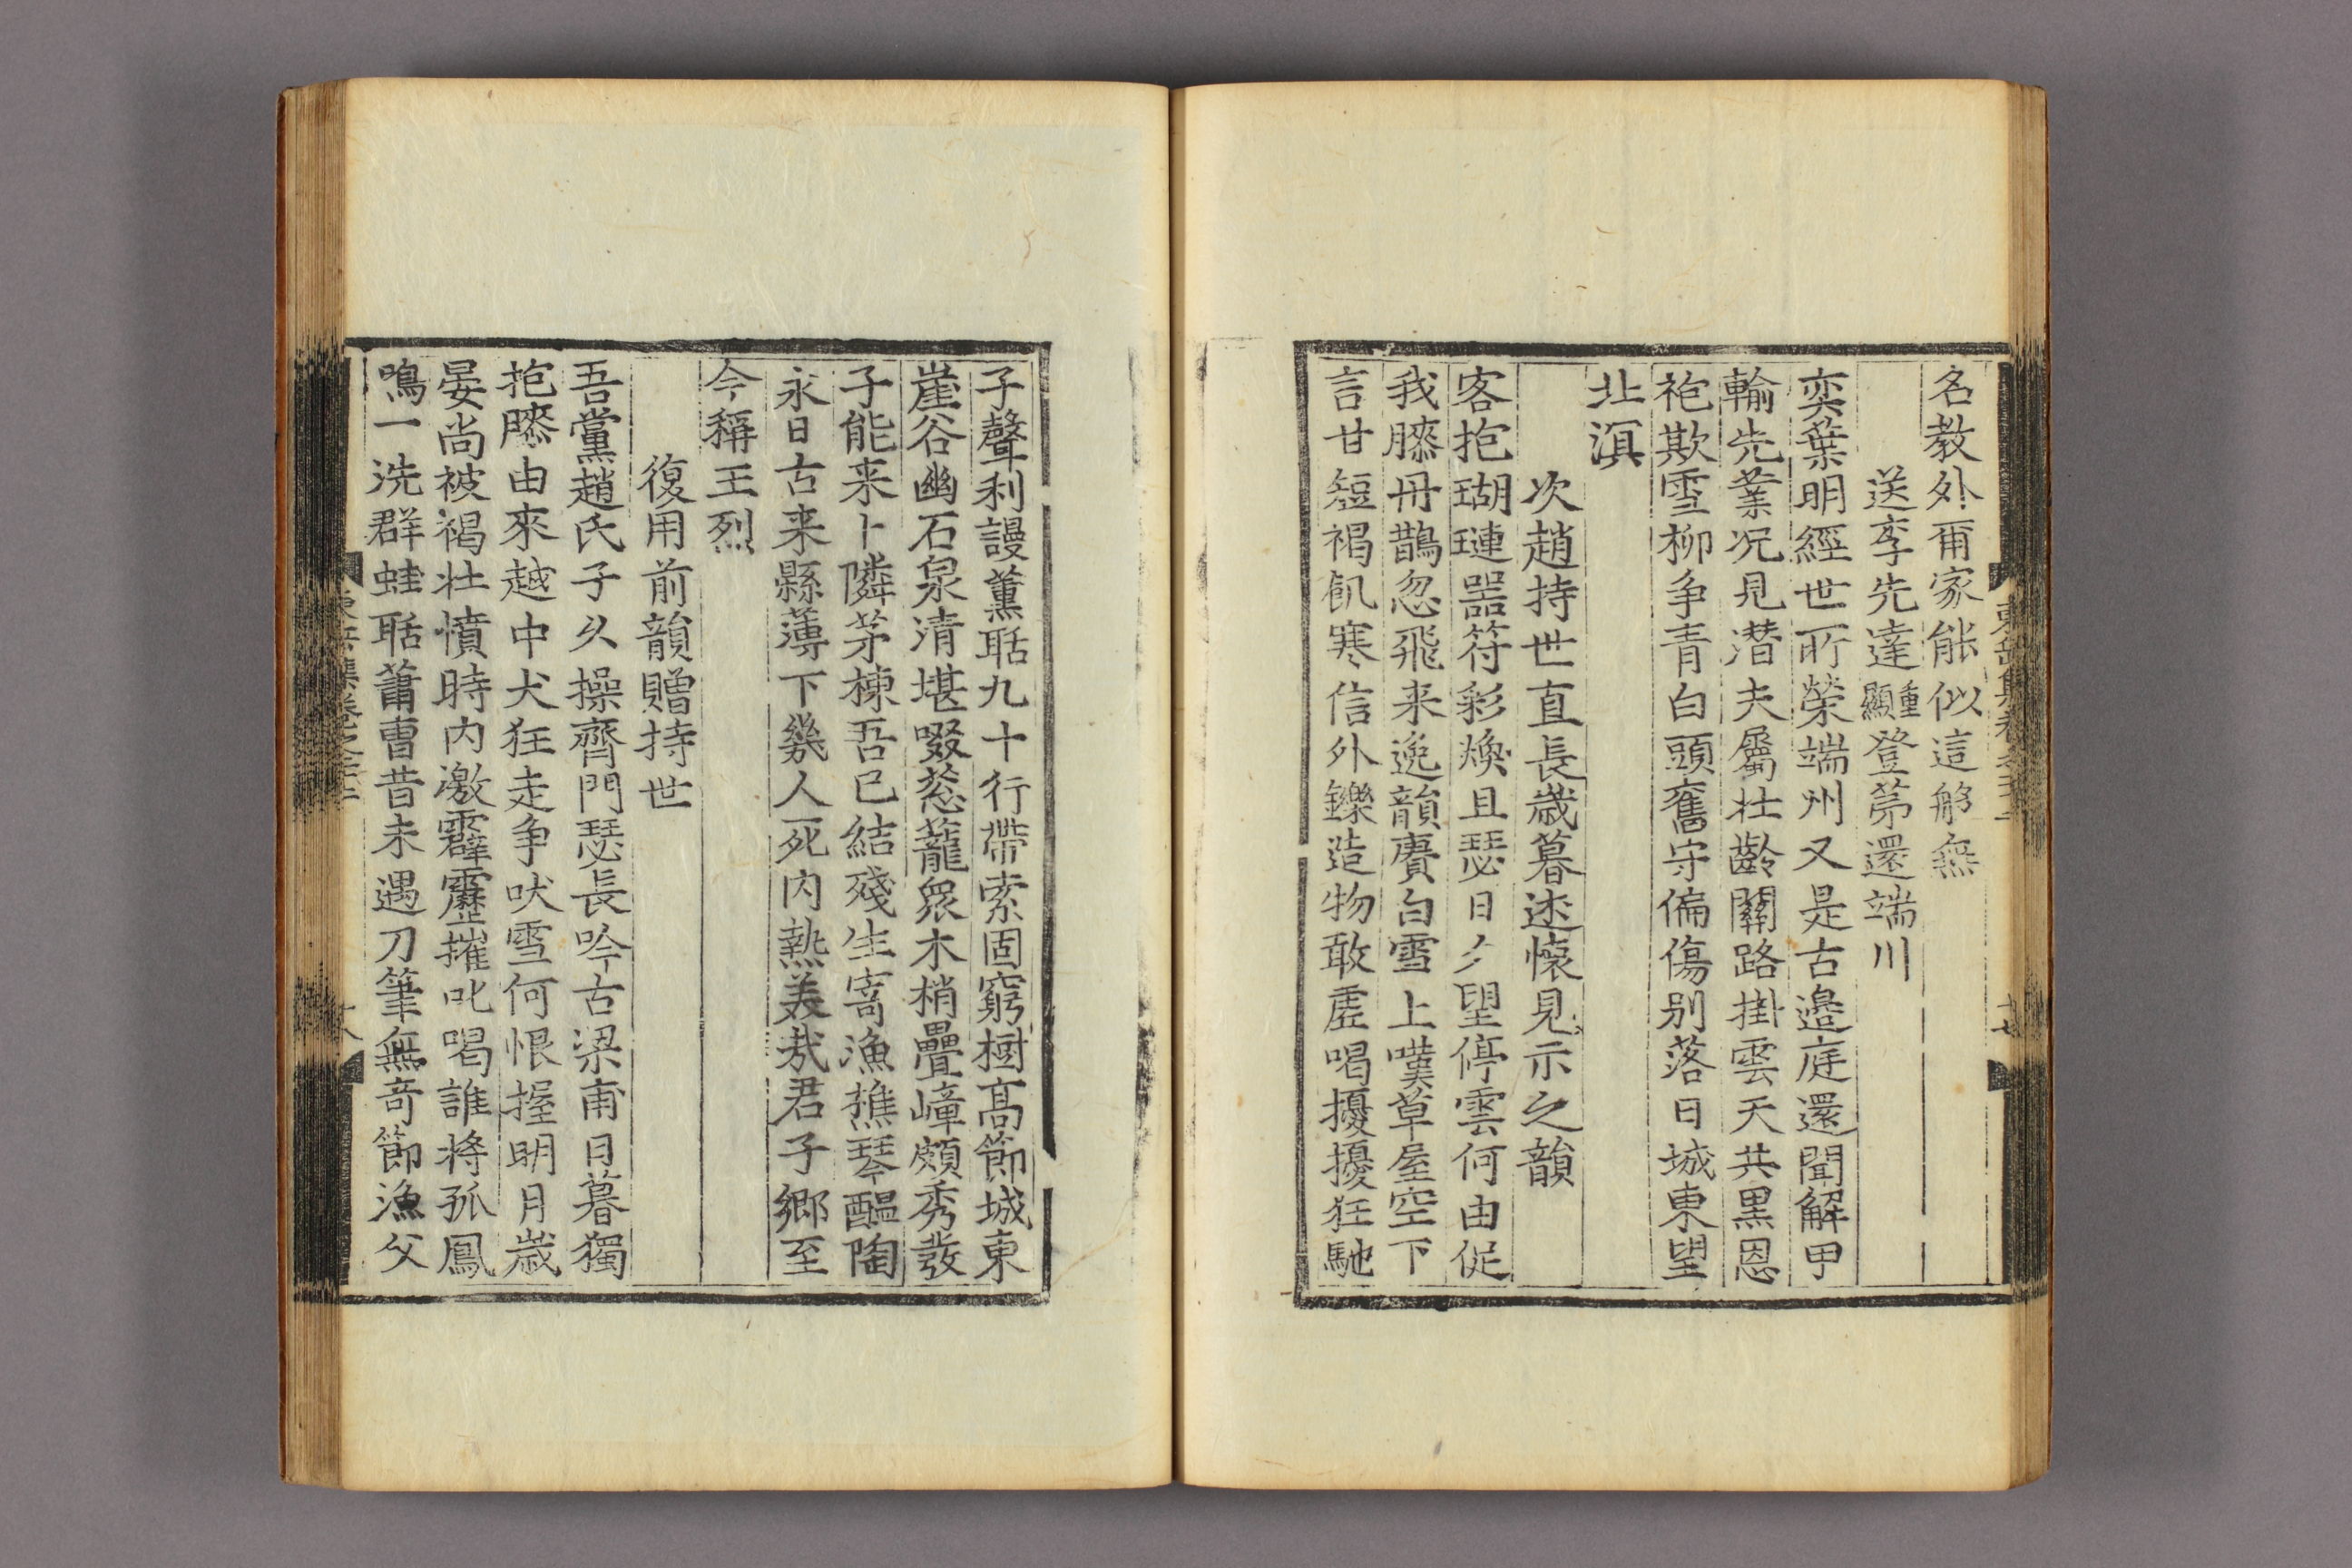 名教外爾家能似這般無
送李先達重顯登第還端川
奕葉明經世所榮端州又是古邊庭還聞解甲
輸先業况見潜夫屬壯齡關路掛雲天共黒恩
袍欺雪柳爭青白頭舊守偏傷別落日城東望
北溟
次趙持世直長歲暮述懷見示之韻
客抱瑚璉器符彩煥且瑟日夕望停雲何由促
我膝冊鵲忽飛来逸韻賡白雪上嘆草屋空下
言甘短褐飢寒信外鑠造物敢虛喝擾擾狂馳
子聲利謾薰聒九十行帶索固窮樹高節城東
崖谷幽石泉清堪啜葱蘢衆木梢疊嶂頗秀發
子能来卜隣茅棟吾已結殘生寄漁樵琴醞陶
永日古来縣薄下幾人死内熱美哉君子鄉至
今稱王烈
復用前韻贈持世
吾黨趙氏子久操齊門瑟長吟古梁甫日暮獨
抱膝由來越中犬狂走爭吠雪何恨握明月歲
晏尚被褐壯憤時内激霹靂摧叱喝誰將孤鳳
鳴一洗群蛙聒蕭曹昔未遇刀筆無奇節漁父